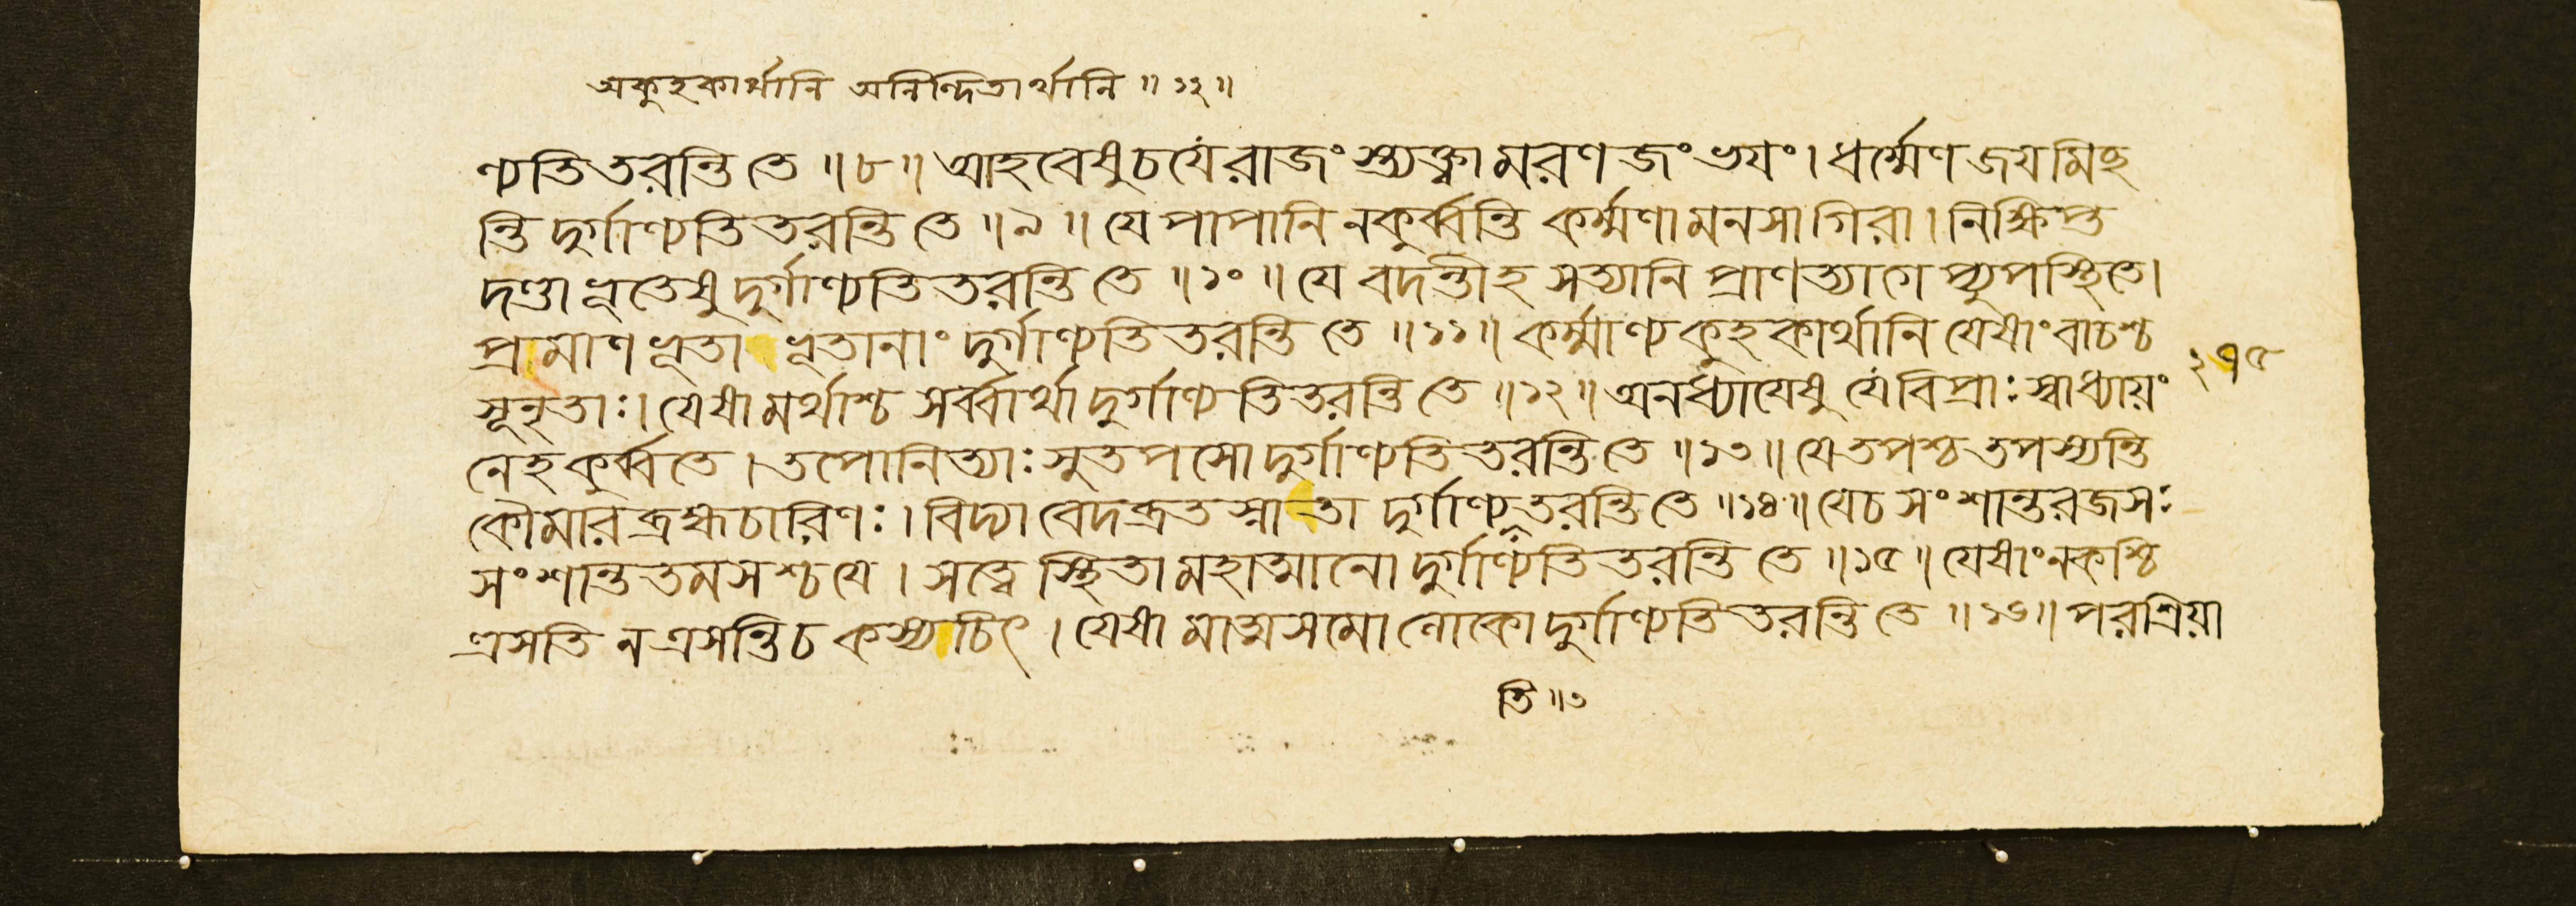 অকুহকার্থানি অনিন্দিতার্থানি ॥ ১২ ॥
ণ্যতিতরন্তি তে ॥ ৮ ॥ আহবেষুচযেরাজং স্ত্যক্ত্বামরণজংভযং । ধর্ম্মেণ জযমিচ্ছ
ন্তি দুর্গাণ্যতিতরন্তি তে ॥ ৯ ॥ যে পাপানি নকুর্ব্বন্তি কর্ম্মণামনসাগিরা । নিক্ষিপ্ত
দণ্ডাভূতেষু দুর্গাণ্যতিতরন্তি তে ॥ ১০ ॥ যে বদন্তীহ সত্যানি প্রাণত্যাগেপ্যুপস্থিতে ।
প্রামাণভূতা ভূতানাং দুর্গাণ্যতিতরন্তি তে ॥ ১১ ॥ কর্ম্মাণ্যকুহকার্থানি যেষাংবাচশ্চ
সূনৃতাঃ । যেষামর্থাশ্চ সর্ব্বার্থা দুর্গাণ্যতিতরন্তি তে ॥ ১২ ॥ অনধ্যাযেষু যেবিপ্রাঃ স্বাধ্যায়ং
২৭৫
নেহকুর্ব্বতে । তপোনিত্যাঃ সুতপসো দুর্গাণ্যতিতরন্তি তে ॥ ১৩ ॥ যেতপশ্চতপস্যন্তি
কৌমারব্রহ্মচারিণঃ । বিদ্যাবেদব্রতস্নাতা দুর্গাণ্যতরন্তি তে ॥ ১৪ ॥ যেচ সংশান্তরজসঃ
সংশান্ততমসশ্চযে । সত্ত্বে স্থিতামহাত্মানো দুর্গাণ্যতিতরন্তি তে ॥ ১৫ ॥ যেষাংনকশ্চি
ত্রসতি নত্রসন্তিচ কস্যচিৎ । যেষামাত্মসমোলোকো দুর্গাণ্যতিতরন্তি তে ॥ ১৬ ॥ পরশ্রিয়া
তি ॥ ৩